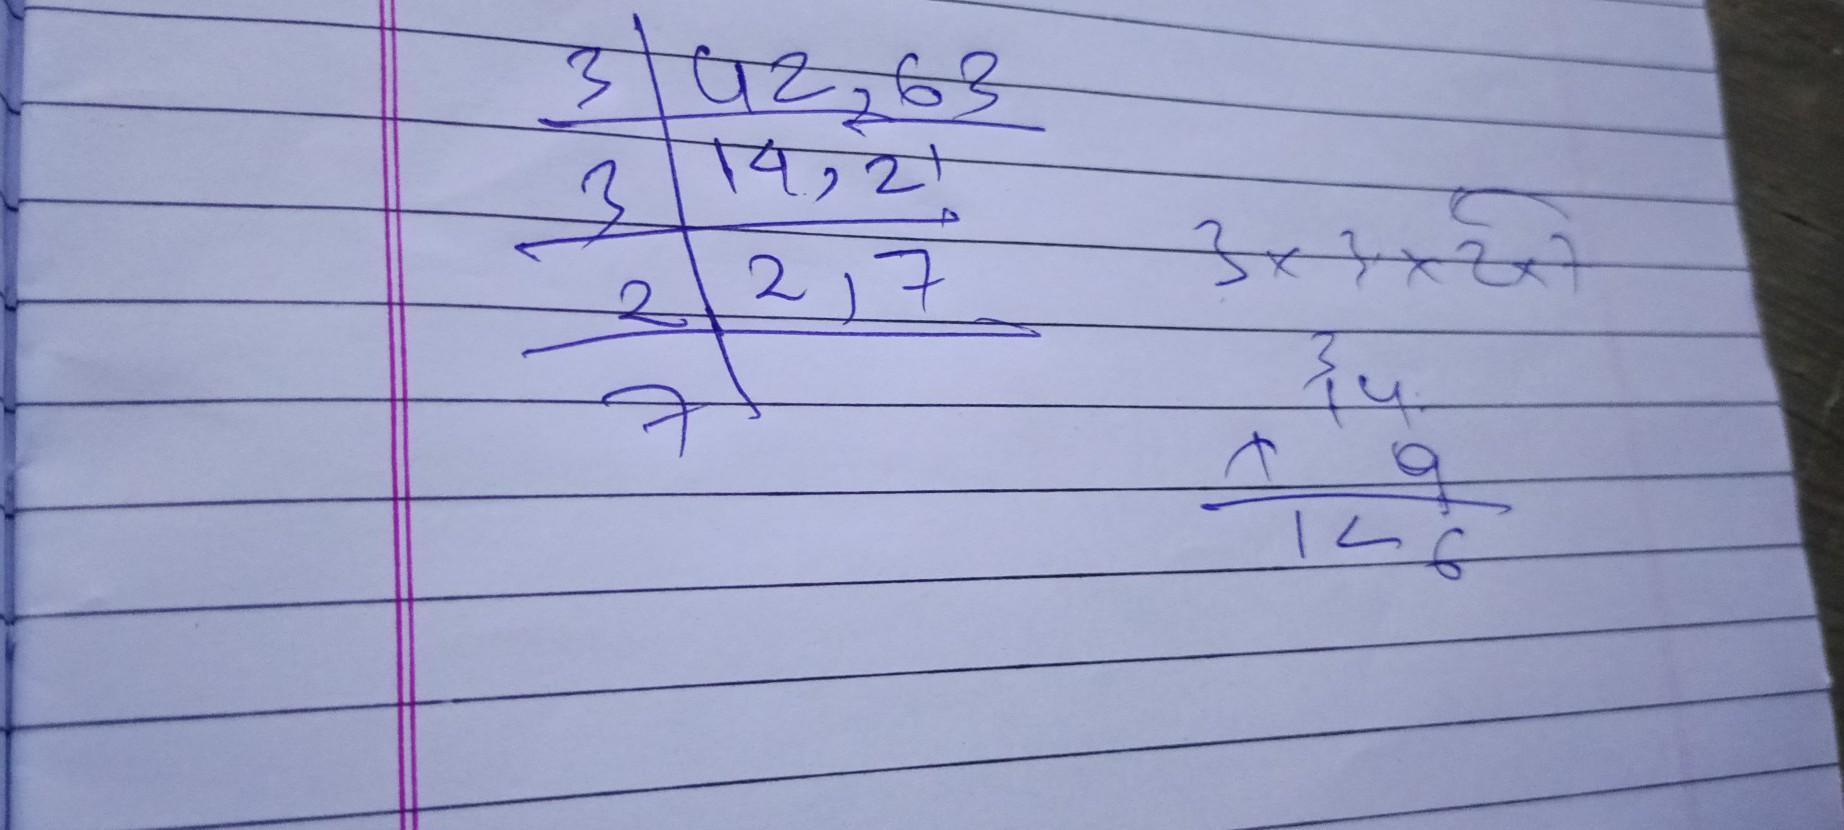 3 | 42, 63
3 | 14, 21
2 | 2, 7
7
3 x 3 x 2 x 7
3
14
x 9
126